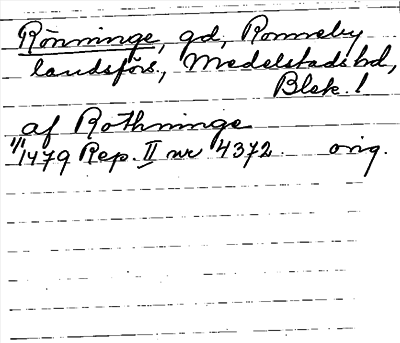 Rönninge, gd, Ronneby
landsförs., Medelstads hd,
Blek. l
af Rothninge
1/1 1479 Rep. II nr 4372. orig.